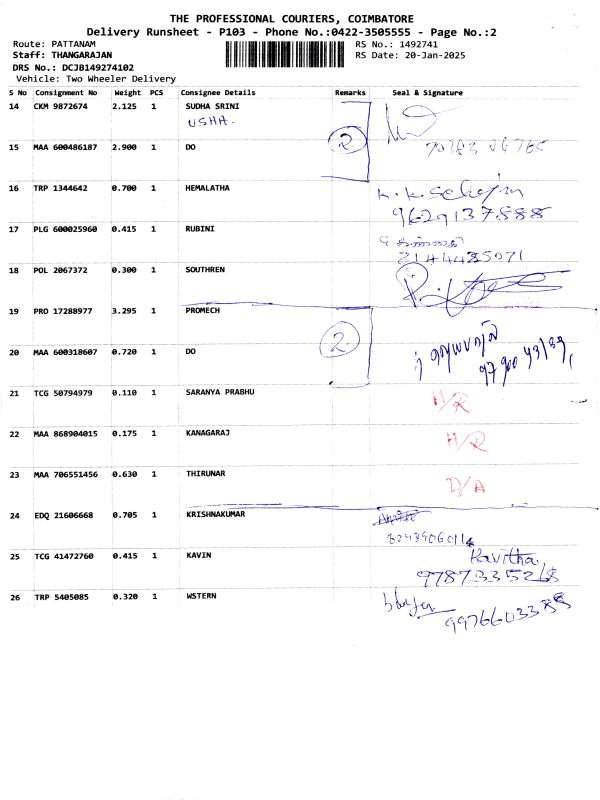 THE PROFESSIONAL COURIERS, COIMBATORE
Delivery Runsheet - P103 - Phone No.:0422-3505555 - Page No.:2
Route: PATTANAM RS No.: 1492741
Staff: THANGARAJAN RS Date: 20-Jan-2025
DRS No.: DCJB149274102
Vehicle: Two Wheeler Delivery
S No Consignment No Weight PCS Consignee Details Remarks Seal & Signature
14 CKM 9872674 2.125 1 SUDHA SRINI
USHA.
15 MAA 600486187 2.900 1 DO 2
16 TRP 1344642 0.700 1 HEMALATHA
9629137888
17 PLG 600025960 0.415 1 RUBINI
18 POL 2067372 0.300 1 SOUTHREN
19 PRO 17288977 3.295 1 PROMECH
20 MAA 600318607 0.720 1 DO 2
21 TCG 50794979 0.110 1 SARANYA PRABHU H/R
22 MAA 868904015 0.175 1 KANAGARAJ H/R
23 MAA 706551456 0.630 1 THIRUNAR D/A
24 EDQ 21606668 0.705 1 KRISHNAKUMAR
25 TCG 41472760 0.415 1 KAVIN Kavitha.
9787335268
26 TRP 5405085 0.320 1 WSTERN
9976603388